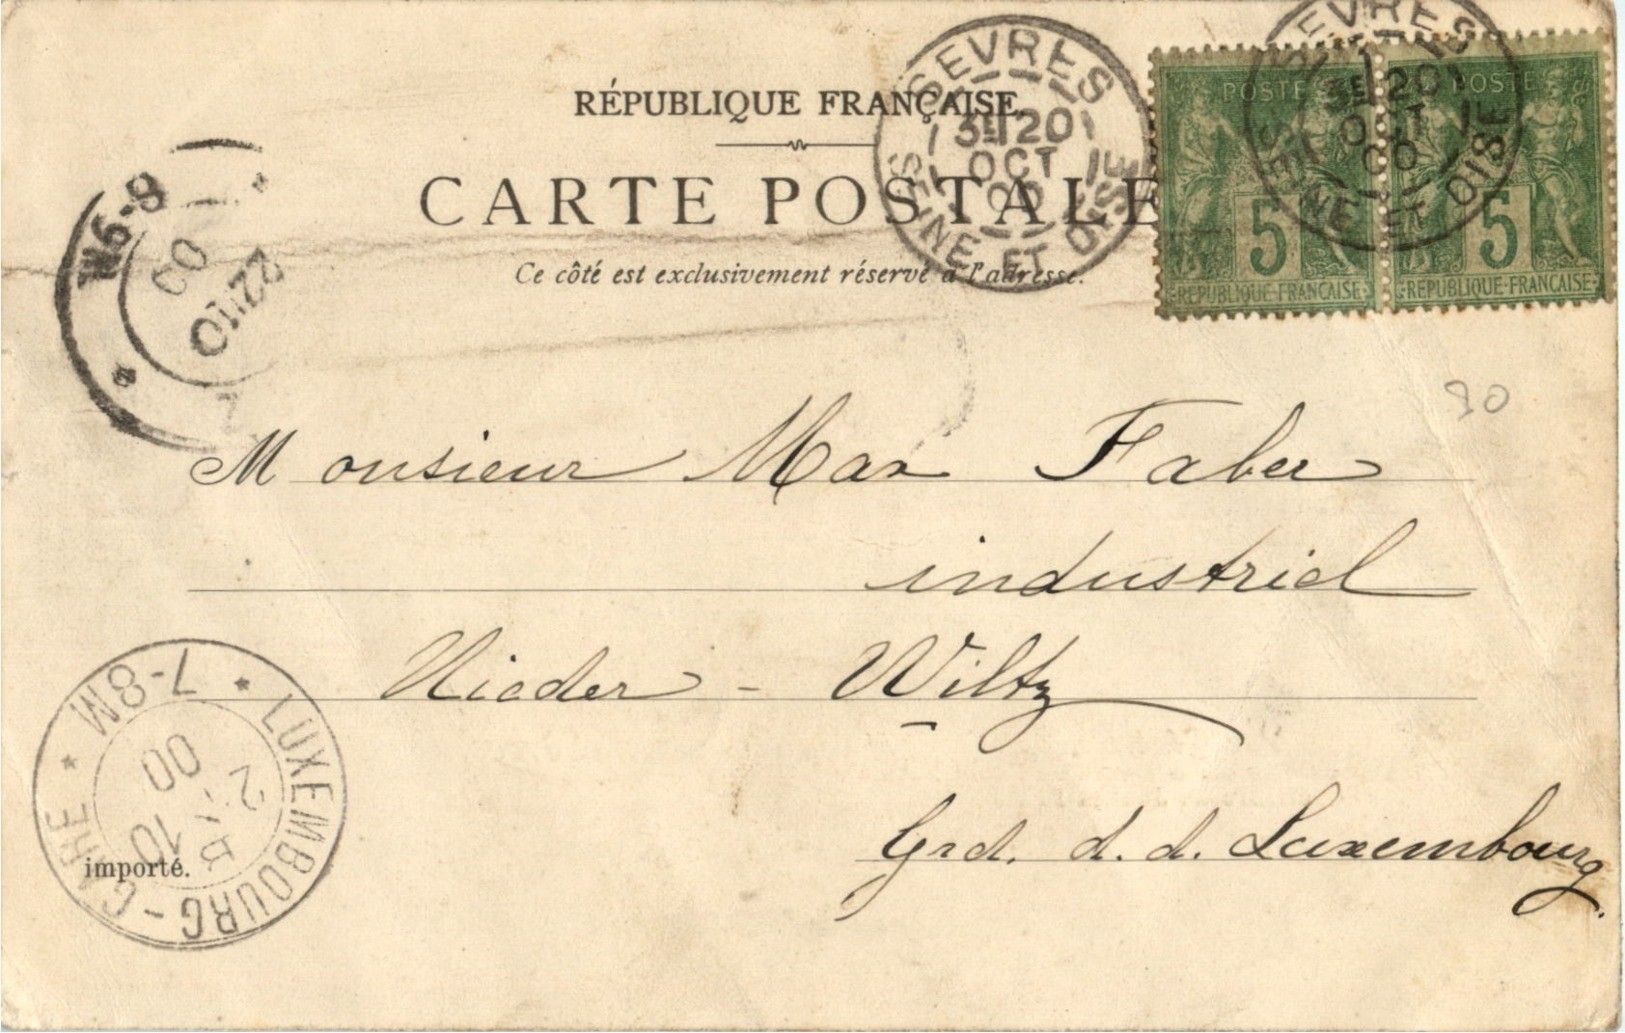 RÉPUBLIQUE FRANÇAISE
CARTE POSTALE
Ce côté est exclusivement réservé à l'adresse.
SEVRES
3E 20
OCT
00
SEINE ET OISE
SEVRES
3E 20
OCT
00
SEINE ET OISE
POSTE
5
REPUBLIQUE FRANÇAISE
POSTE
5
REPUBLIQUE FRANÇAISE
8-9M
22 10
00
80
Monsieur Max Faber
industriel
Nieder - Wiltz
Grd. d. d. Luxembourg.
LUXEMBOURG-GARE
7-8M
10
00
importé.